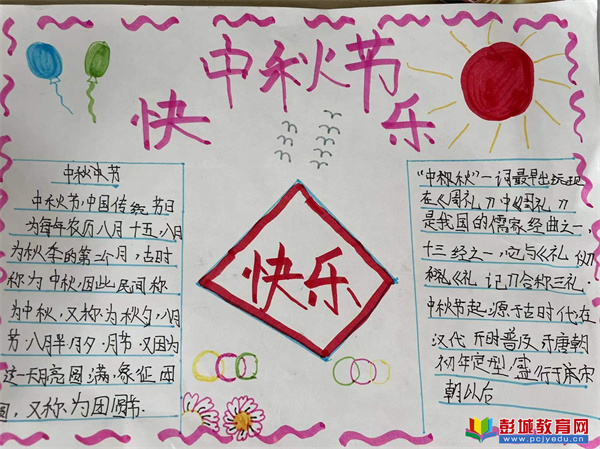 中秋节
快 乐
中秋中节
中秋节,中国传统节日
为每年农历八月十五,八月
为秋季的第二个月,古时
称为中秋,因此民间称
为中秋,又称为秋夕,八月
节、八月半、月夕、月节,又因为
这一天月亮圆满,象征团
圆,又称为团圆节.
快乐
一词最早出现
在《周礼》中《周礼》
是我国的儒家经典之一
十三经之一,它与《礼》
《礼记》合称三礼.
中秋节起源于古时代在
汉代 普及于唐朝
初年定型,盛行于
朝以后
彭城教育网
www.pcjyedu.cn